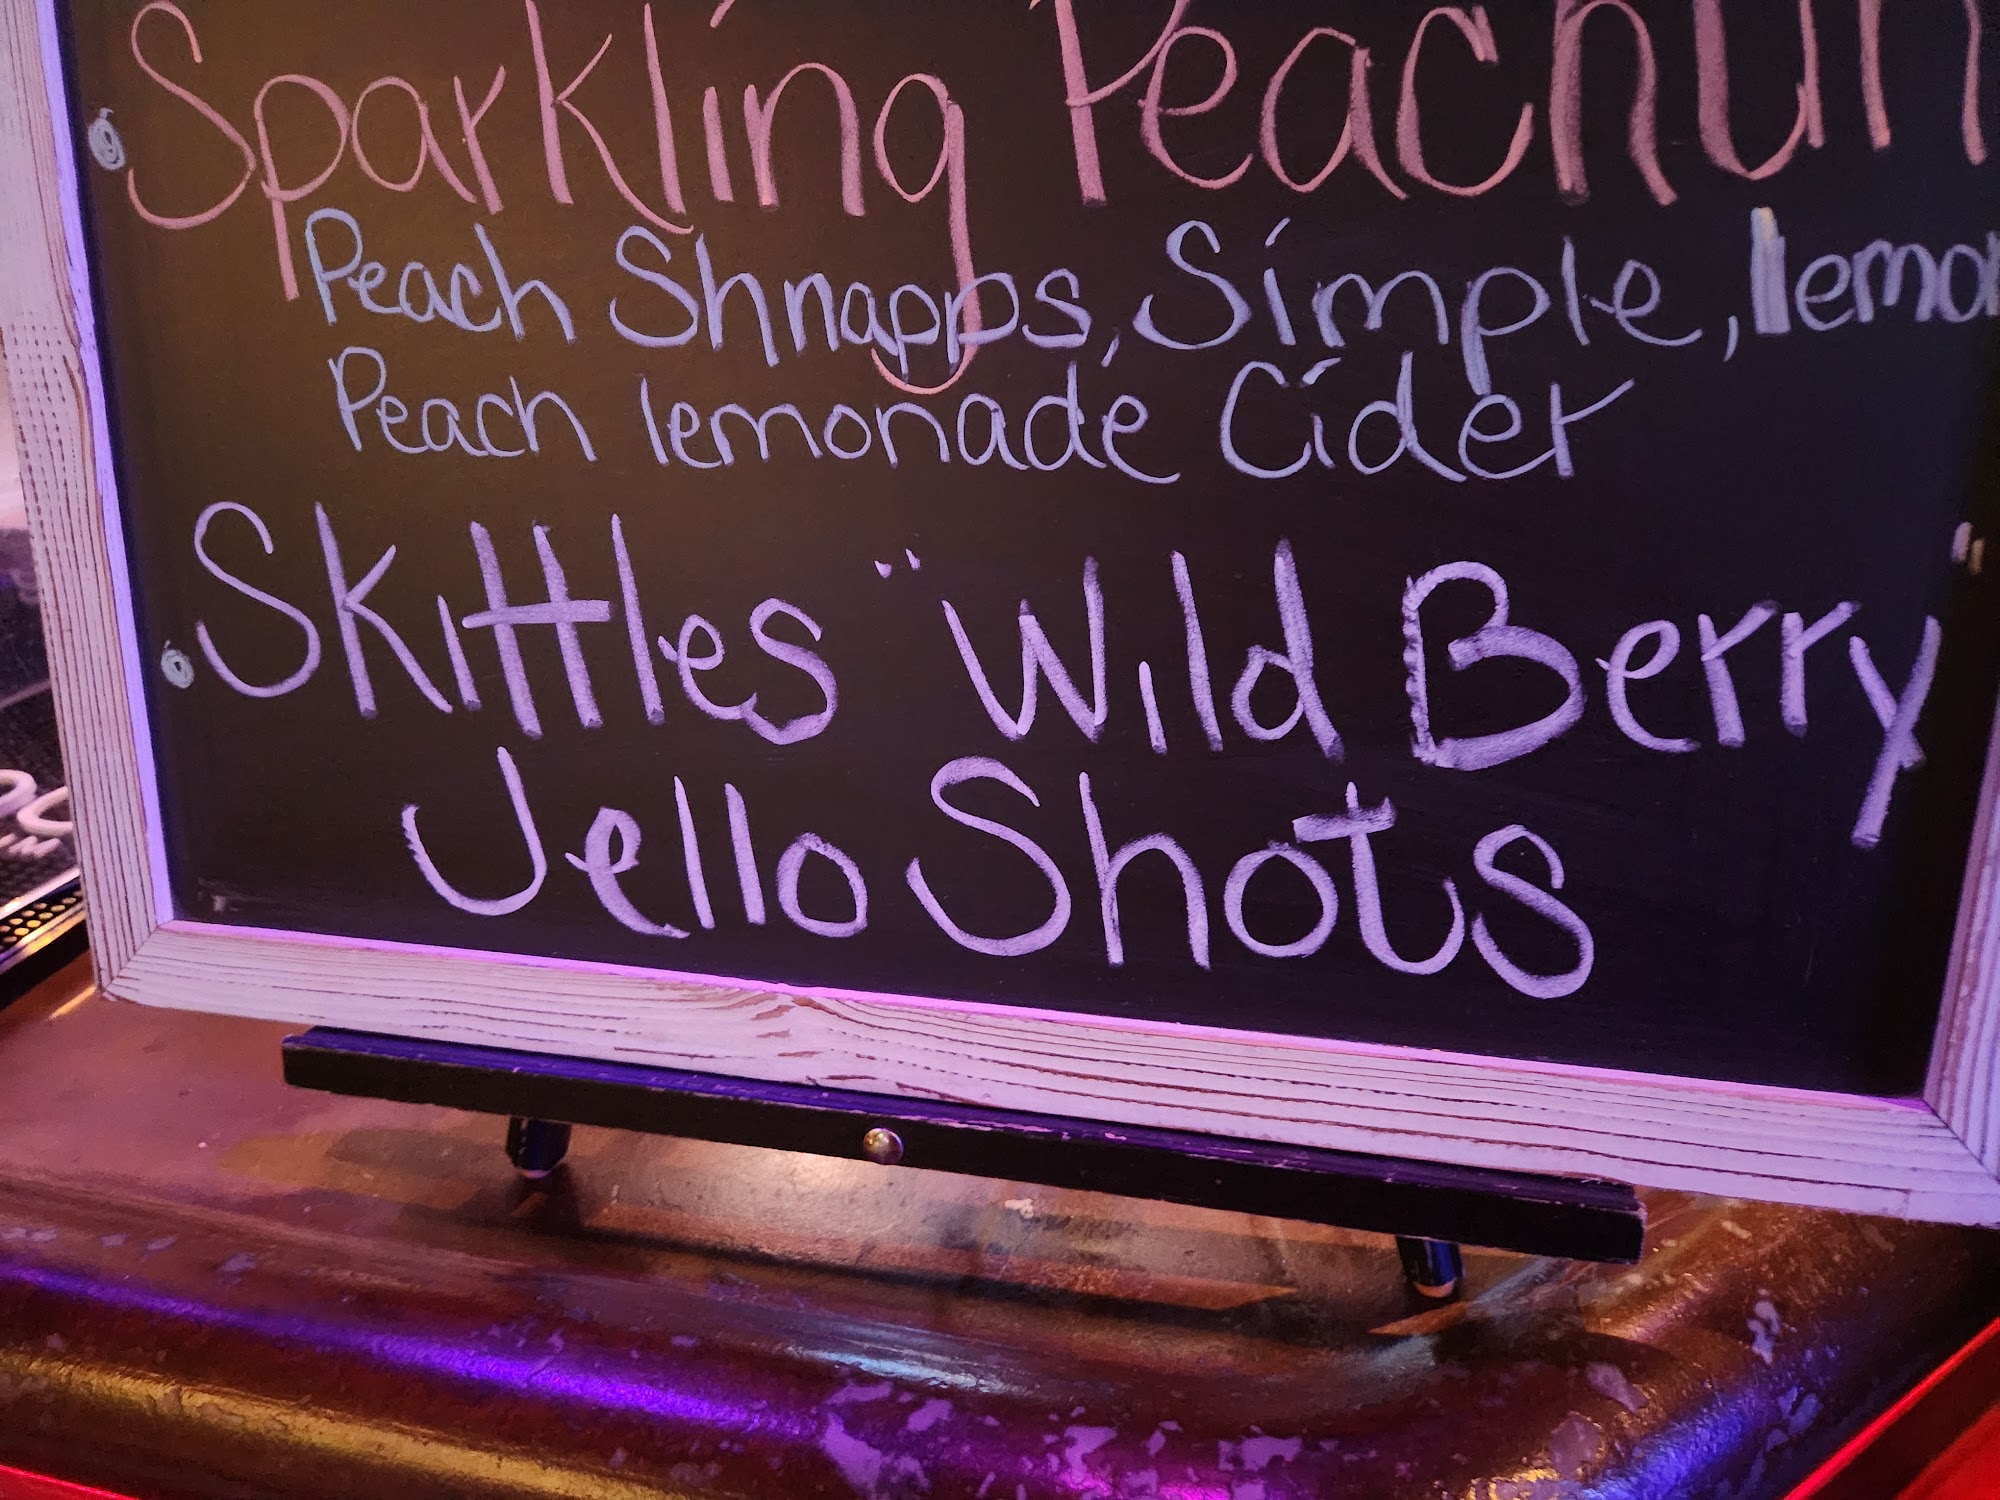 Sparkling Peachun
Peach Shnapps, Simple, lemon
Peach lemonade Cider
Skittles "Wild Berry"
Jello Shots